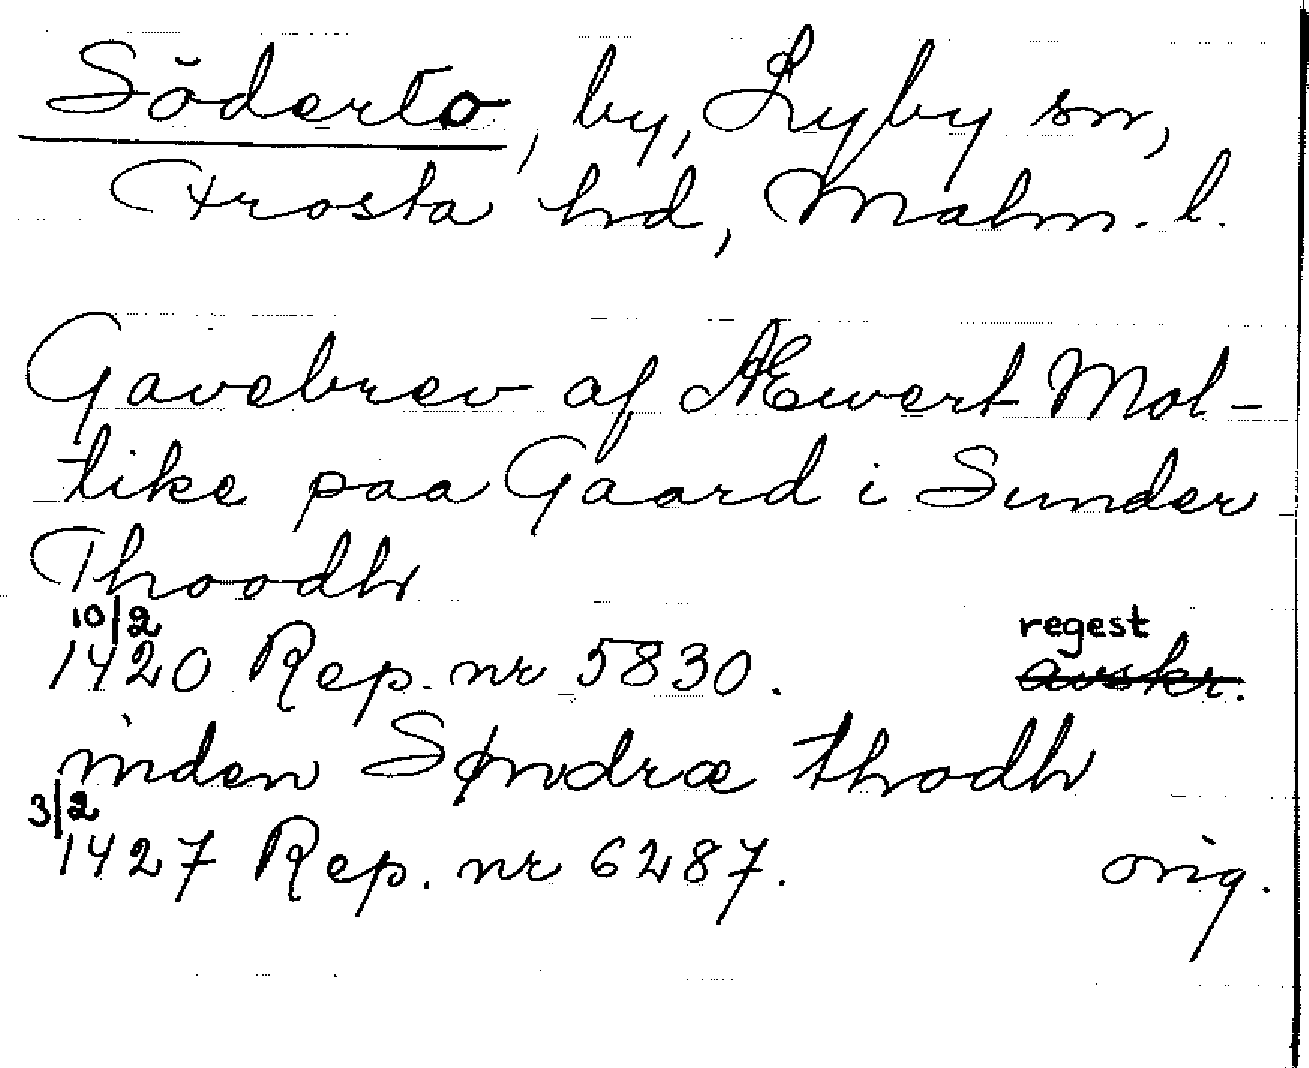 Söderto, by, Lyby sn,
Frosta hd, Malm. l.
Gavebrev af Æwert Mol-
tike paa Gaard i Sunder
Thoodh
10/2 regest
1420 Rep. nr 5830. avskr.
inden Søndræ thodh
3/2
1427 Rep. nr 6287. orig.